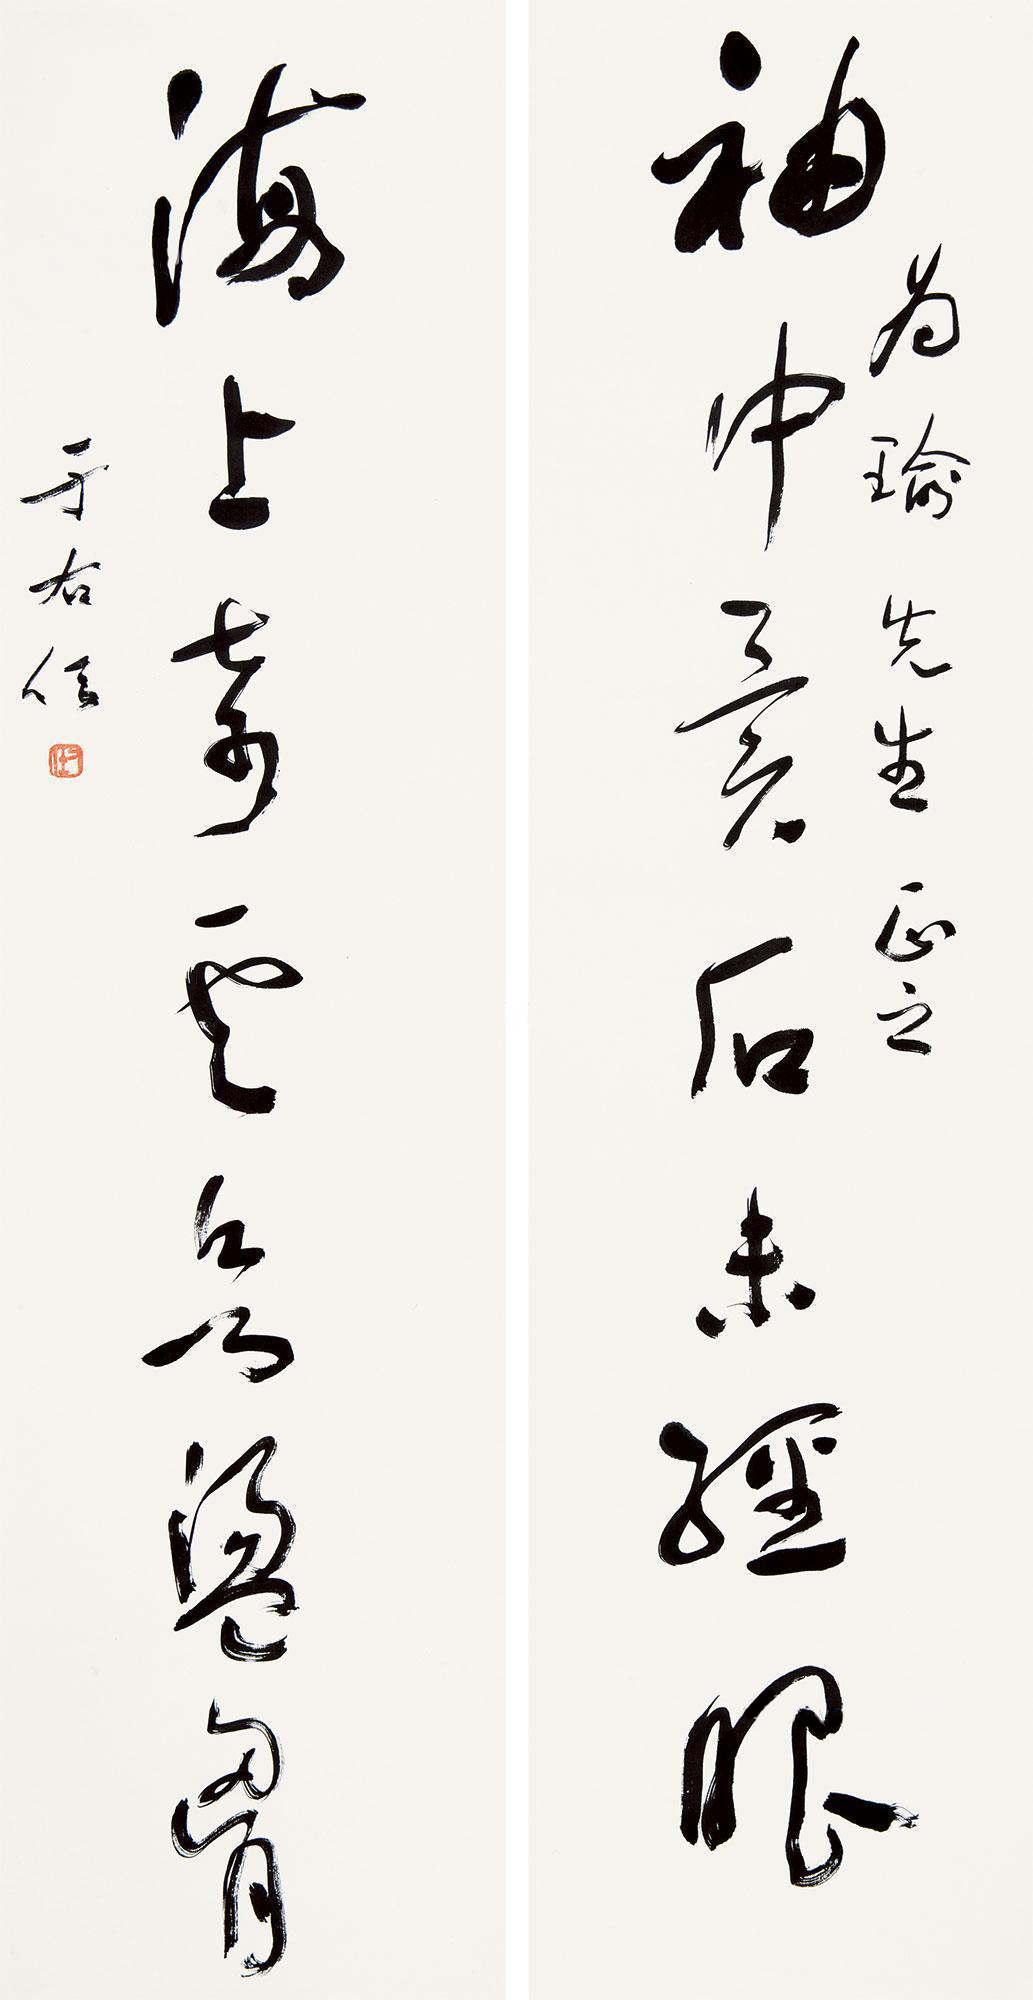 為瑜先生正之
袖中異石未經眼
海上奇雲欲盪胷
于右任